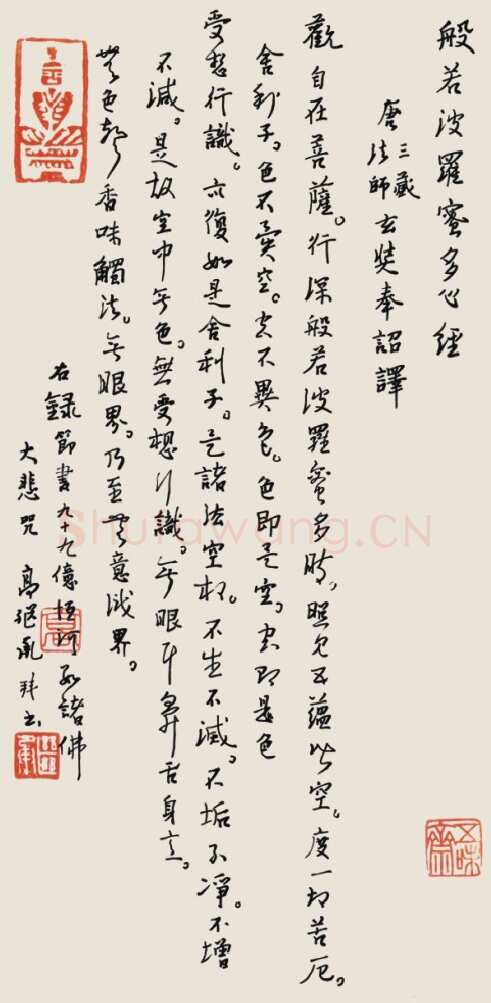 般若波羅蜜多心經
唐三藏法師玄奘奉詔譯
觀自在菩薩。行深般若波羅蜜多時。照見五蘊皆空。度一切苦厄。
舍利子。色不異空。空不異色。色即是空。空即是色
受想行識。亦復如是舍利子。是諸法空相。不生不滅。不垢不淨。不增
不減。是故空中無色。無受想行識。無眼耳鼻舌身意。
無色聲香味觸法。無眼界。乃至無意識界。
右錄節書九十九億恒河沙諸佛
大悲咒 高 承拜書
五味齋
Shufawang.CN